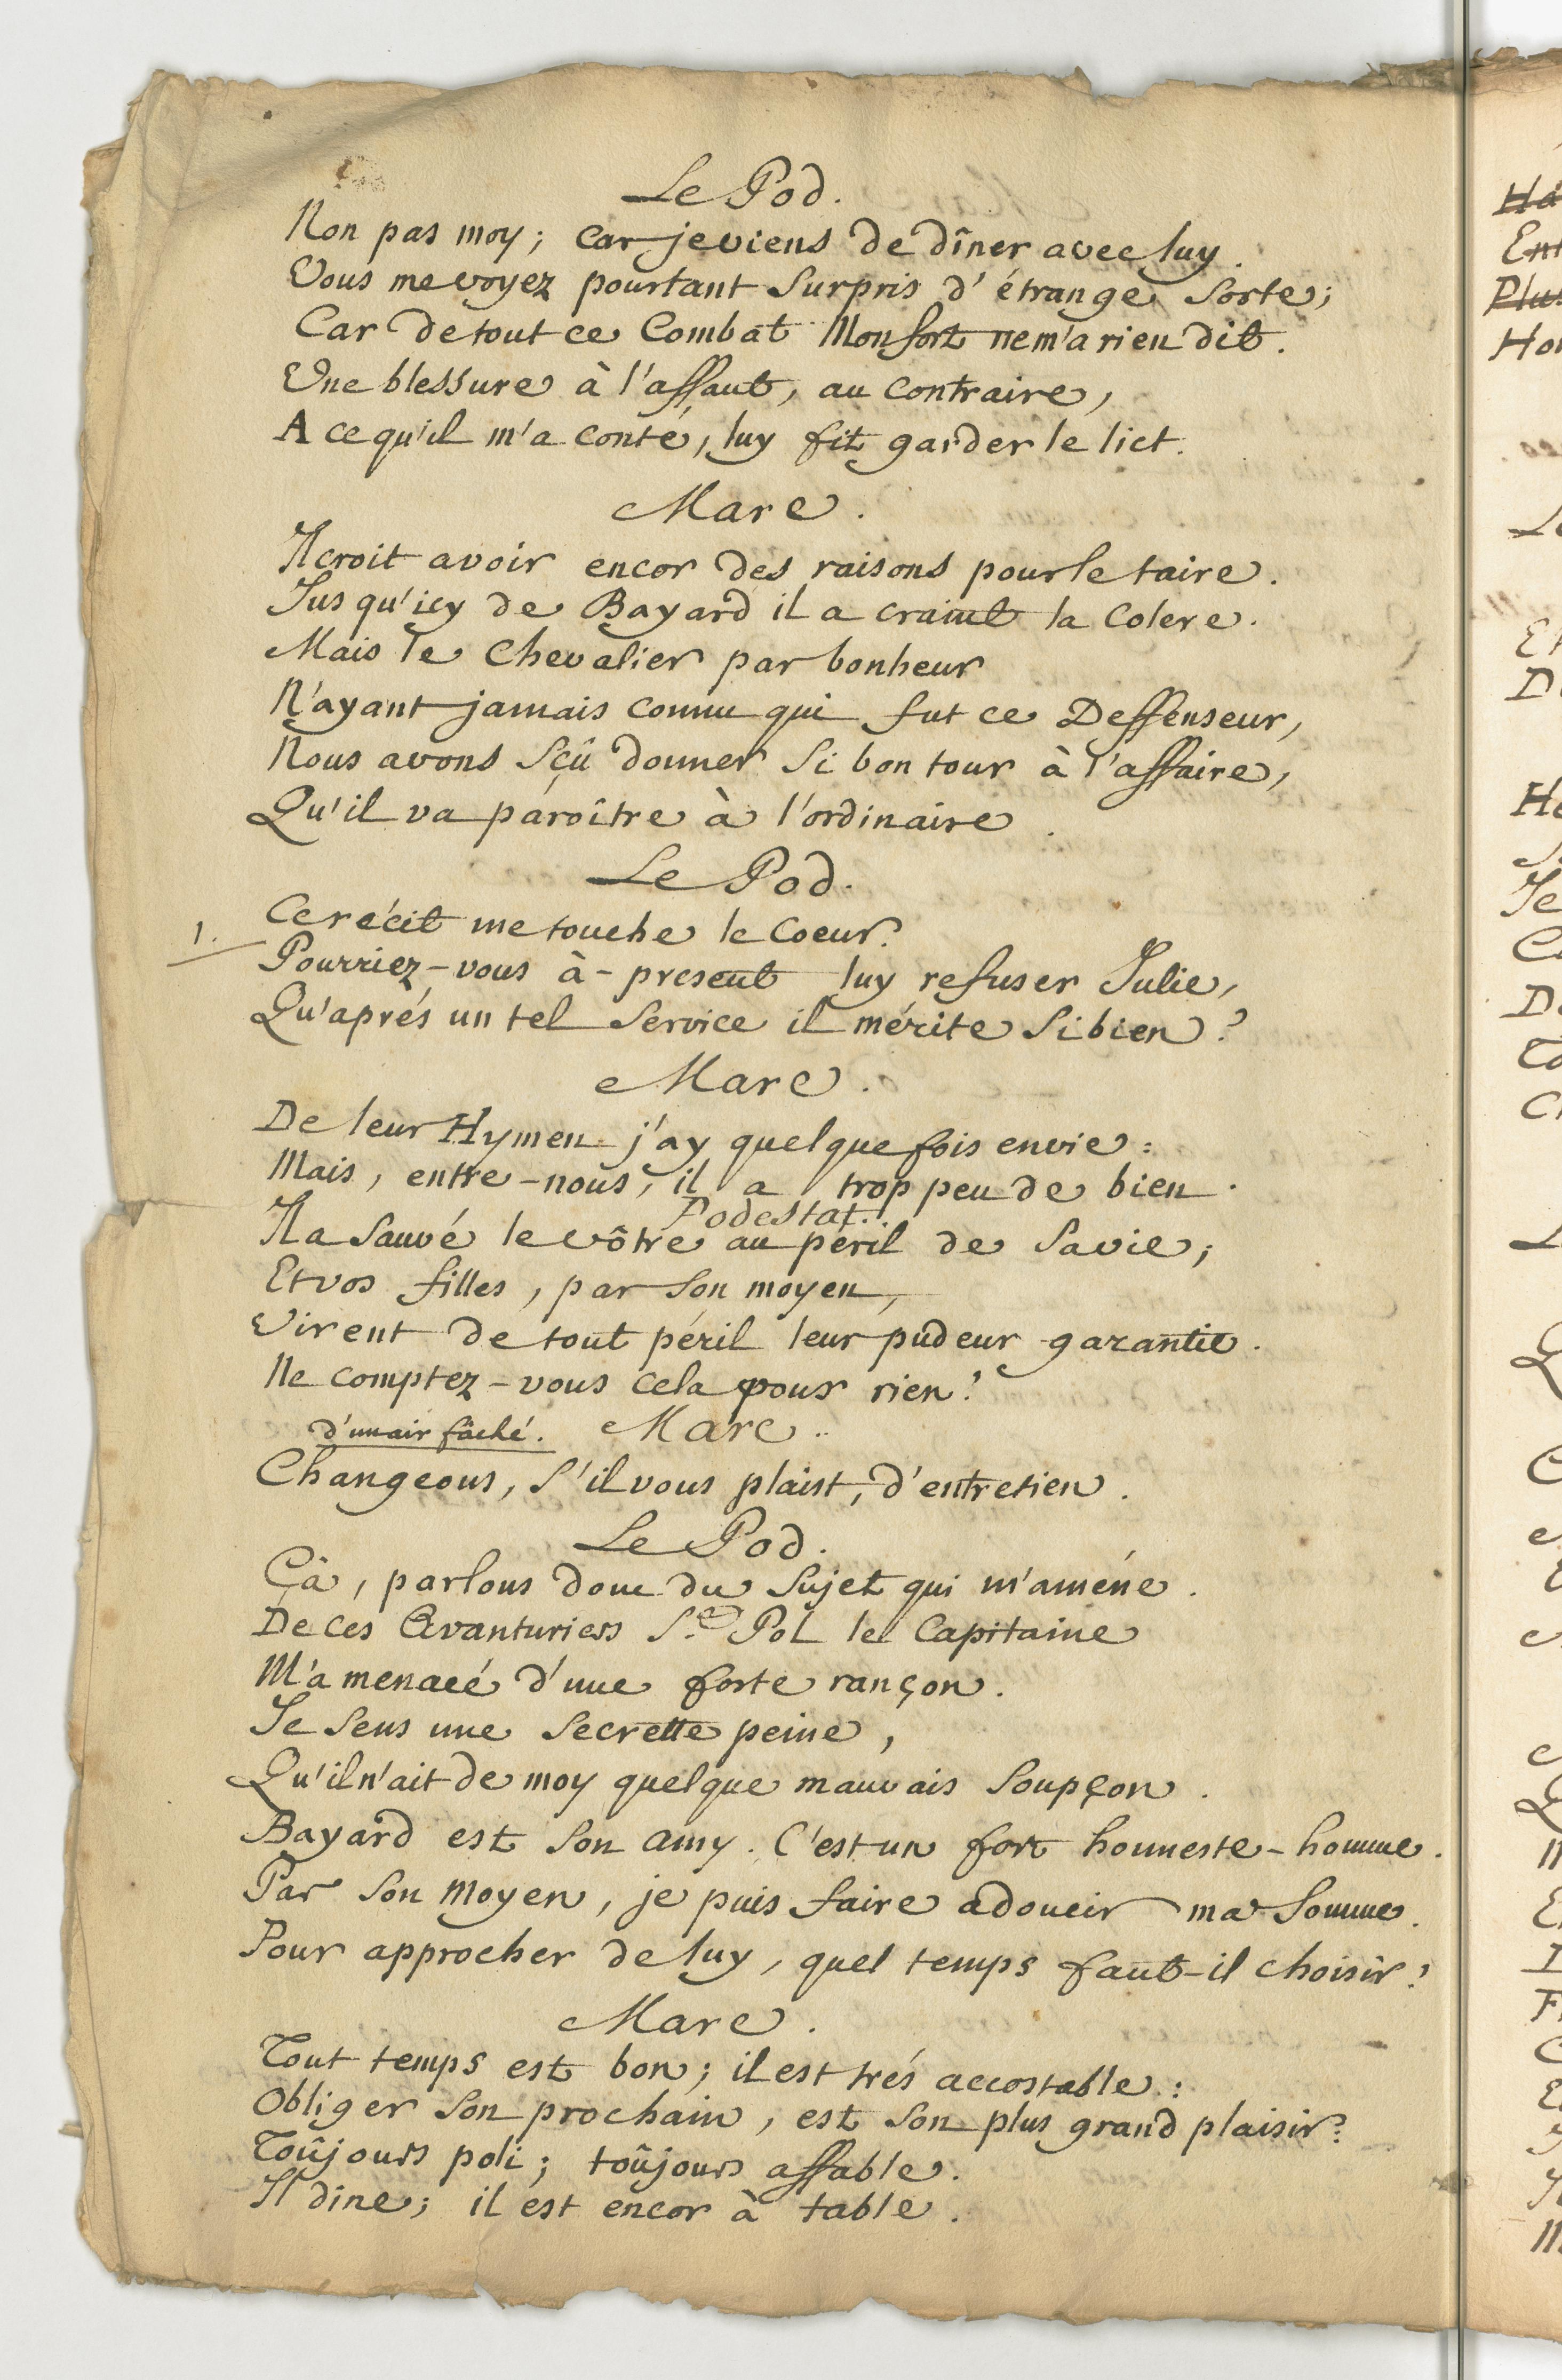 Le Pod.
Non pas moy; car je viens de dîner avec luy.
Vous me voyez pourtant surpris d'étrange sorte;
Car de tout ce Combat Monfort ne m'a rien dit.
Une blessure à l'assaut, au contraire,
A ce qu'il m'a conté, luy fit garder le lict.
Marc.
Il croit avoir encor des raisons pour le taire.
Jusqu'icy de Bayard il a craint la colere.
Mais le Chevalier par bonheur
N'ayant jamais connu qui fut ce Deffenseur,
Nous avons sçû donner si bon tour à l'affaire,
Qu'il va paroître à l'ordinaire.
Le Pod.
Ce récit me touche le Coeur.
1. Pourriez-vous à-present luy refuser Julie,
Qu'aprés un tel service il mérite si bien?
Marc.
De leur Hymen j'ay quelque fois envie:
Mais, entre-nous, il a trop peu de bien.
Podestat.
Il a sauvé le vôtre au péril de sa vie;
Et vos filles, par son moyen,
Virent de tout péril leur pudeur garantie.
Ne comptez-vous cela pour rien?
d'un air fâché. Marc.
Changeons, s'il vous plaist, d'entretien.
Le Pod.
Çà, parlons donc du sujet qui m'améne.
De ces Avanturiers St. Pol le Capitaine
M'a menacé d'une forte rançon.
Je sens une secrette peine,
Qu'il n'ait de moy quelque mauvais soupçon.
Bayard est son amy. C'est un fort honneste-homme.
Par son moyen, je puis faire adoucir ma somme.
Pour approcher de luy, quel temps faut-il choisir?
Marc.
Tout temps est bon; il est trés accostable:
Obliger son prochain, est son plus grand plaisir:
Toûjours poli; toûjours affable.
Il dîne; il est encor à table.